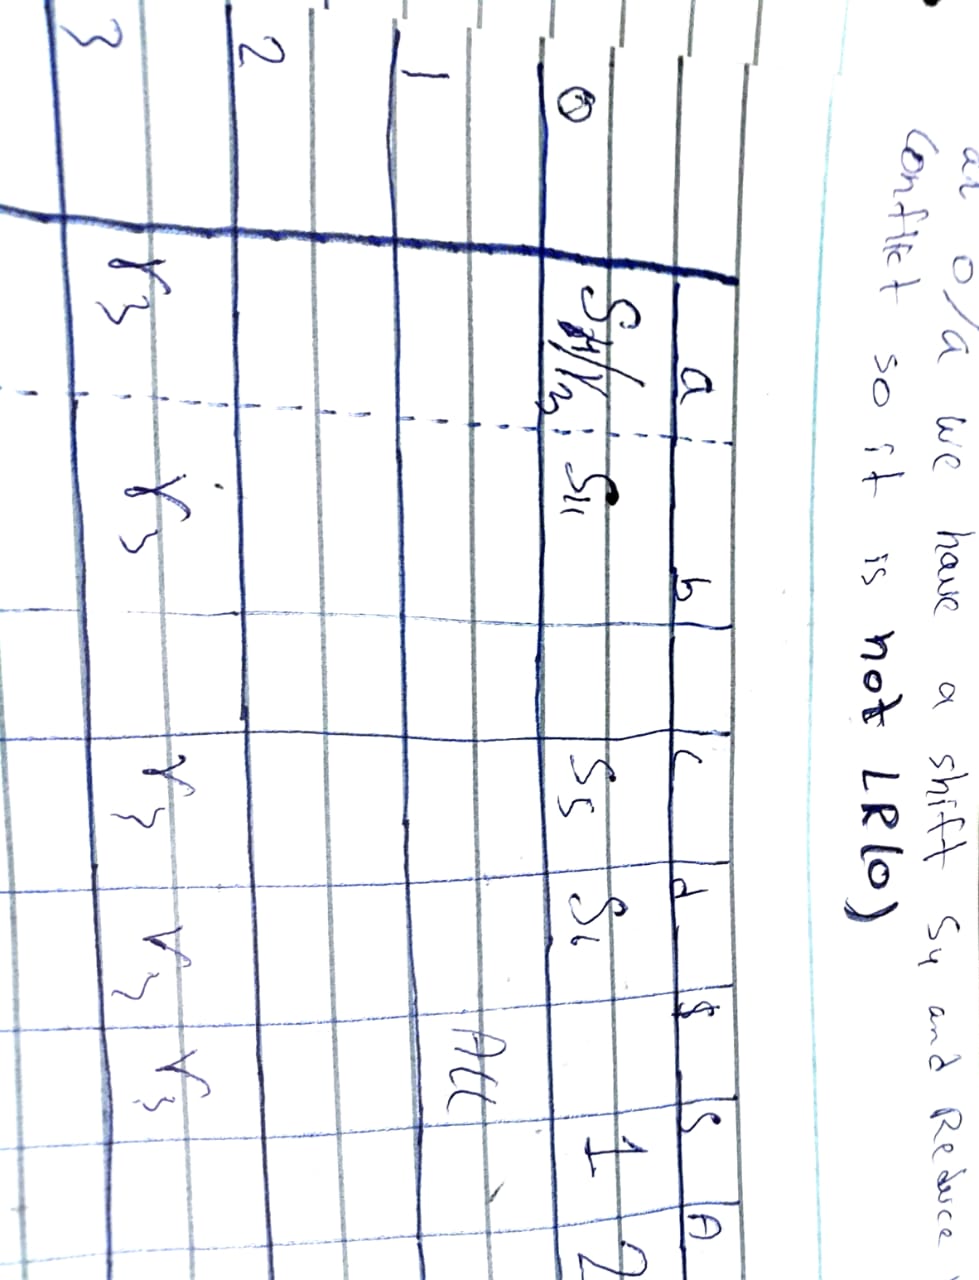 at 0/a we have a shift S4 and Reduce
Conflict so it is not LR(0)
a b c d $ S A
0 S4/r3 S11 S5 S6 1 2
Acc
1
2
3 r3 r3 r3 r3 r3